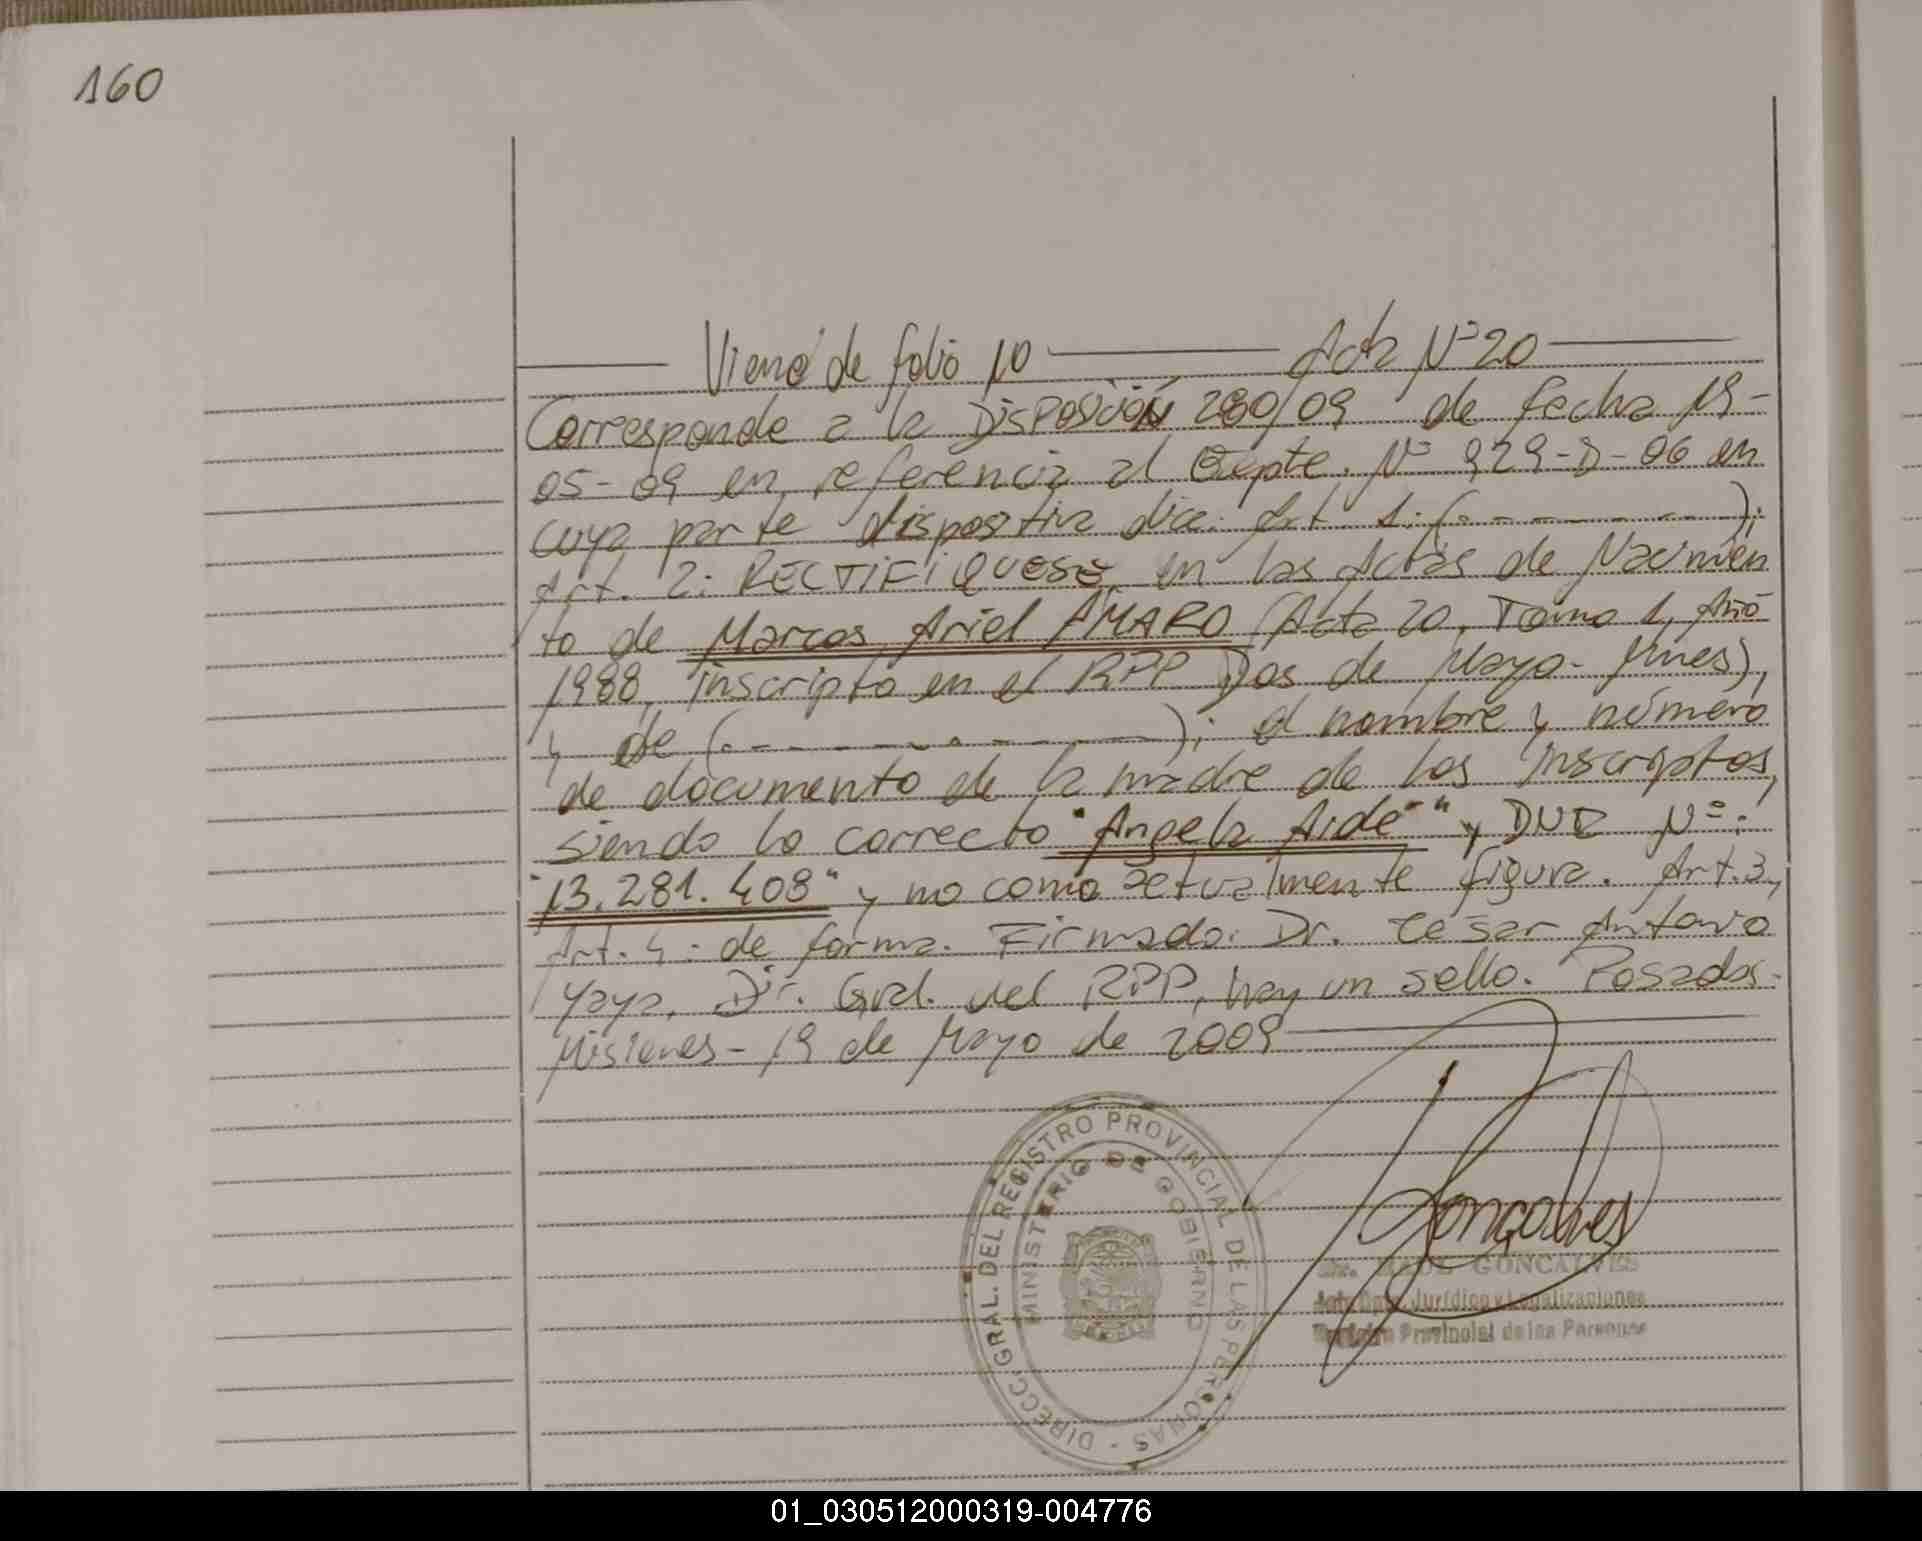 160
Viene de folio 10 Acta Nº 20
Corresponde a la DISPOSICIÓN 280/09 de fecha 19-
05-09 en referencia al Expte. Nº 929-D-06 en
cuya parte dispositiva dice: Art. 1: (.- - - - - - - -);
Art. 2: RECTIFIQUESE, en las Actas de Nacimien
to de Marcos Ariel AMARO (Acta 20, Tomo 1, Año
1988, inscripto en el RPP Dos de Mayo- Mnes),
y de (.- - - - - - - - - -); el nombre y número
de documento de la madre de los inscriptos,
siendo lo correcto "Angela Aide" y DNI Nº:
"13.281.408" y no como actualmente figura. Art. 3,
Art. 4: de forma. Firmado: Dr. Cesar Antonio
Yaya, Dir. Gral. del RPP, hay un sello. Posadas-
Misiones- 19 de Mayo de 2009
DIRECC. GRAL. DEL REGISTRO PROVINCIAL DE LAS PERSONAS -
MINISTERIO DE GOBIERNO
Goncalves
GONCALVES
Jurídico y Legalizaciones
Provincial de las Personas
01_030512000319-004776